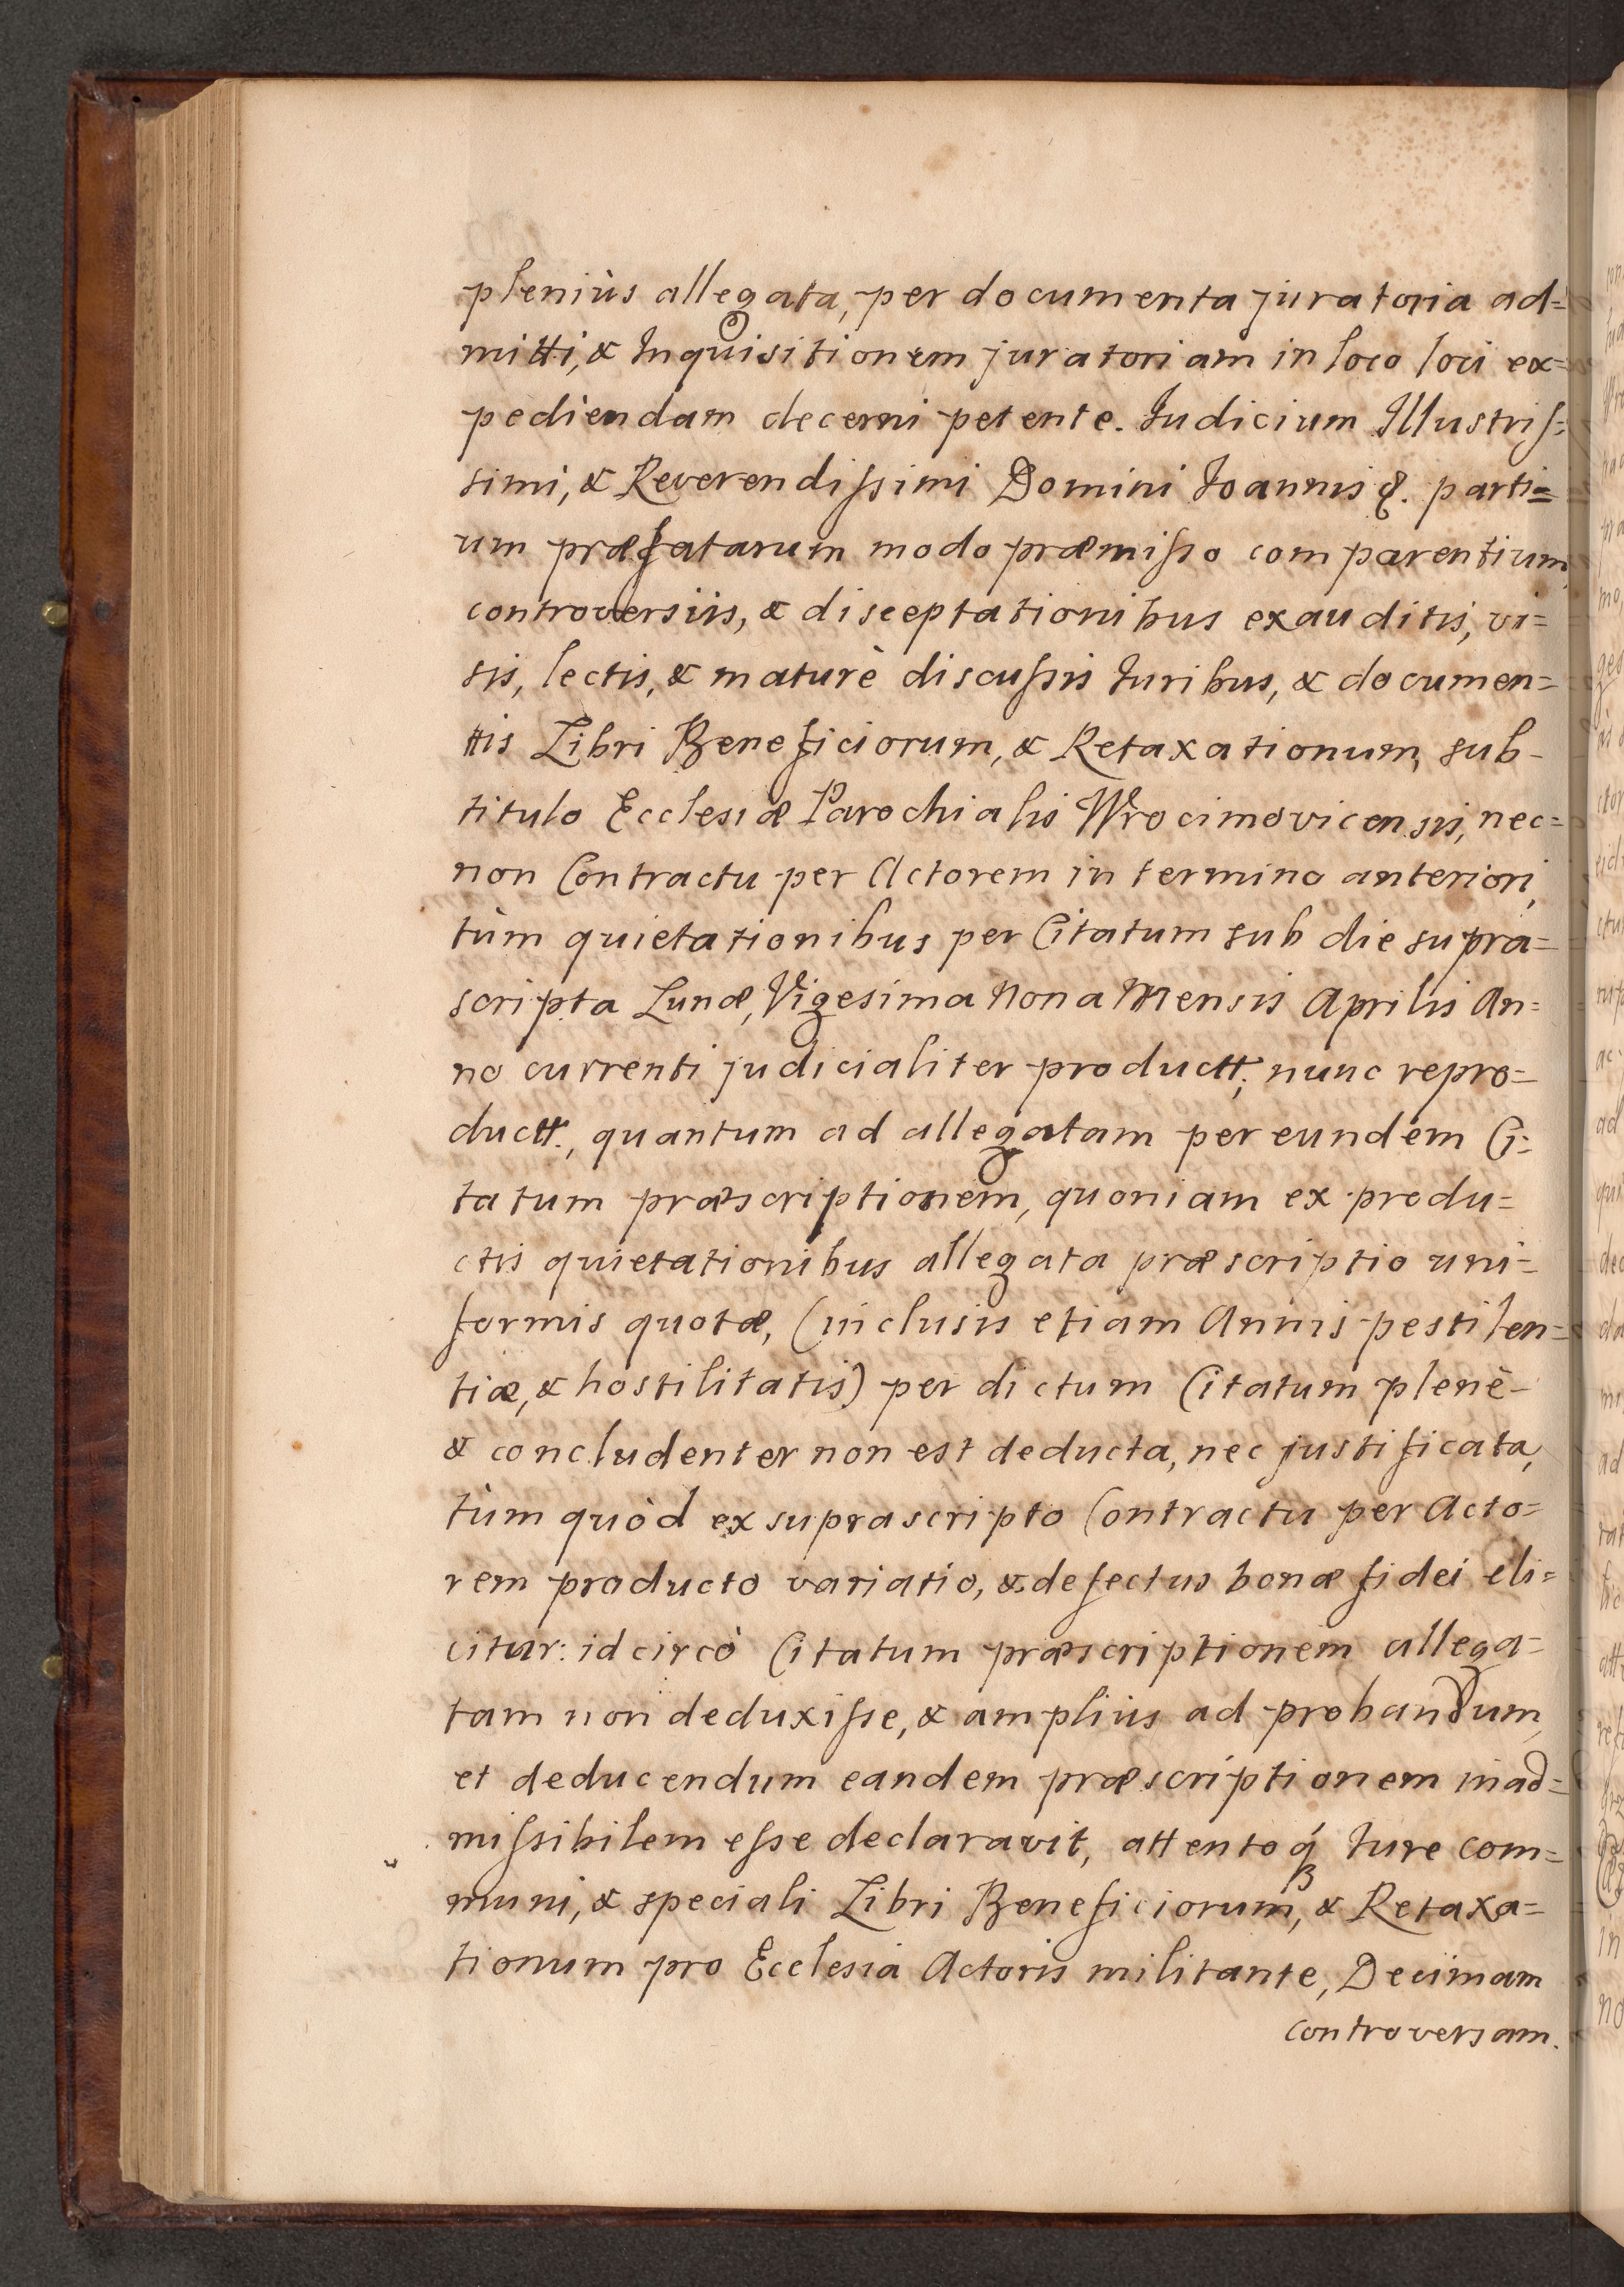 pleniùs allegata, per documenta juratoria ad=
mitti, & Inquisitionem juratoriam in loco loci ex=
pediendam decerni petente. Iudicium Illustriſ=
simi, & Reverendiſsimi Domini Ioannis &. parti=
um præfatarum modo præmiſso comparentium,
controversiis, & disceptationibus exauditis, vi=
sis, lectis, & maturè discuſsis Iuribus, & documen=
ttis Libri Beneficiorum, & Retaxationum, sub-
titulo Ecclesiæ Parochialis Wrocimovicensis, nec=
non Contractu per Actorem in termino anteriori,
tùm quietationibus per Citatum sub die supra=
scripta Lunæ, Vigesima Nona Mensis Aprilis An=
no currenti judicialiter productt; nunc repro=
ductt., quantum ad allegatam per eundem Ci=
tatum præscriptionem, quoniam ex produ=
ctis quietationibus allegata præscriptio uni=
formis quotæ, (inclusis etiam Annis pestilen=
tiæ, & hostilitatis) per dictum Citatum plenè-
& concludenter non est deducta, nec justificata,
tùm quòd ex suprascripto Contractu per Acto=
rem producto variatio, & defectus bonæ fidei eli=
citur: idcircò Citatum præscriptionem allega=
tam non deduxiſse, & amplius ad probandum,
et deducendum eandem præscriptionem inad=
miſsibilem eſse declaravit, attentoq́ Iure com=
muni, & speciali Libri Beneficiorum, & Retaxa=
tionum pro Ecclesia Actoris militante, Decimam
controversam.